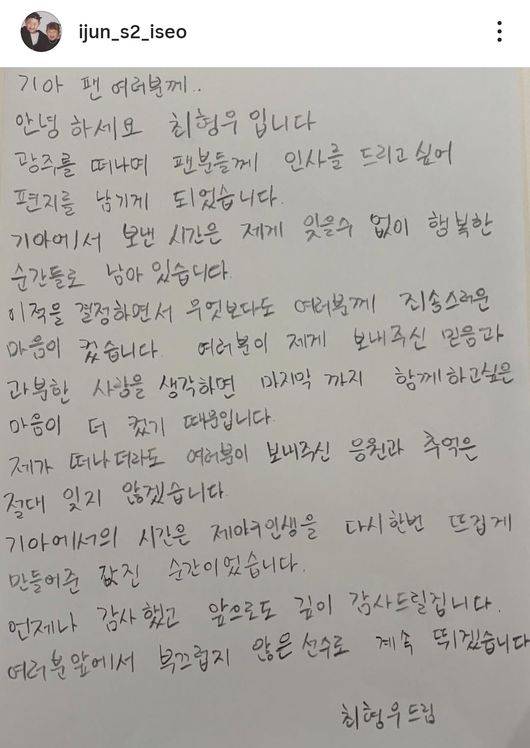 ijun_s2_iseo
기아 팬 여러분께..
안녕하세요 최형우입니다
광주를 떠나며 팬분들께 인사를 드리고 싶어
편지를 남기게 되었습니다.
기아에서 보낸 시간은 제게 잊을수 없이 행복한
순간들로 남아 있습니다.
이적을 결정하면서 무엇보다도 여러분께 죄송스러운
마음이 컸습니다. 여러분이 제게 보내주신 믿음과
과분한 사랑을 생각하면 마지막 까지 함께하고싶은
마음이 더 컸기 때문입니다.
제가 떠나더라도 여러분이 보내주신 응원과 추억은
절대 잊지 않겠습니다.
기아에서의 시간은 제야구인생을 다시한번 뜨겁게
만들어준 값진 순간이었습니다.
언제나 감사했고 앞으로도 깊이 감사드릴겁니다.
여러분앞에서 부끄럽지 않은 선수로 계속 뛰겠습니다
최형우드림